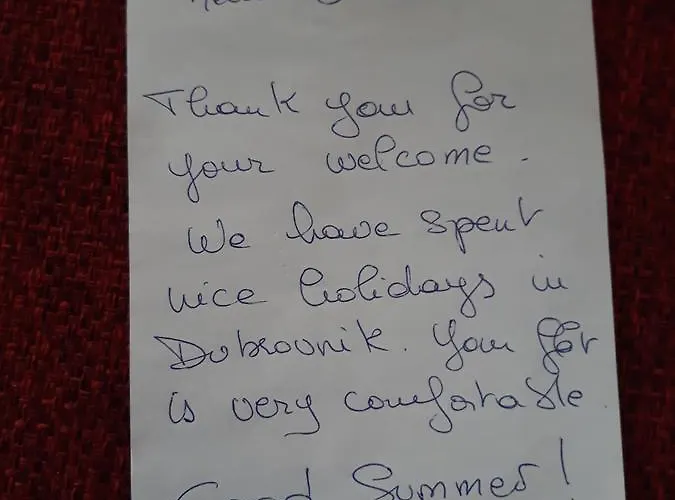 Thank you for
your welcome.
We have spent
nice holidays in
Dubrovnik. You
is very comfortable.
Good Summer!